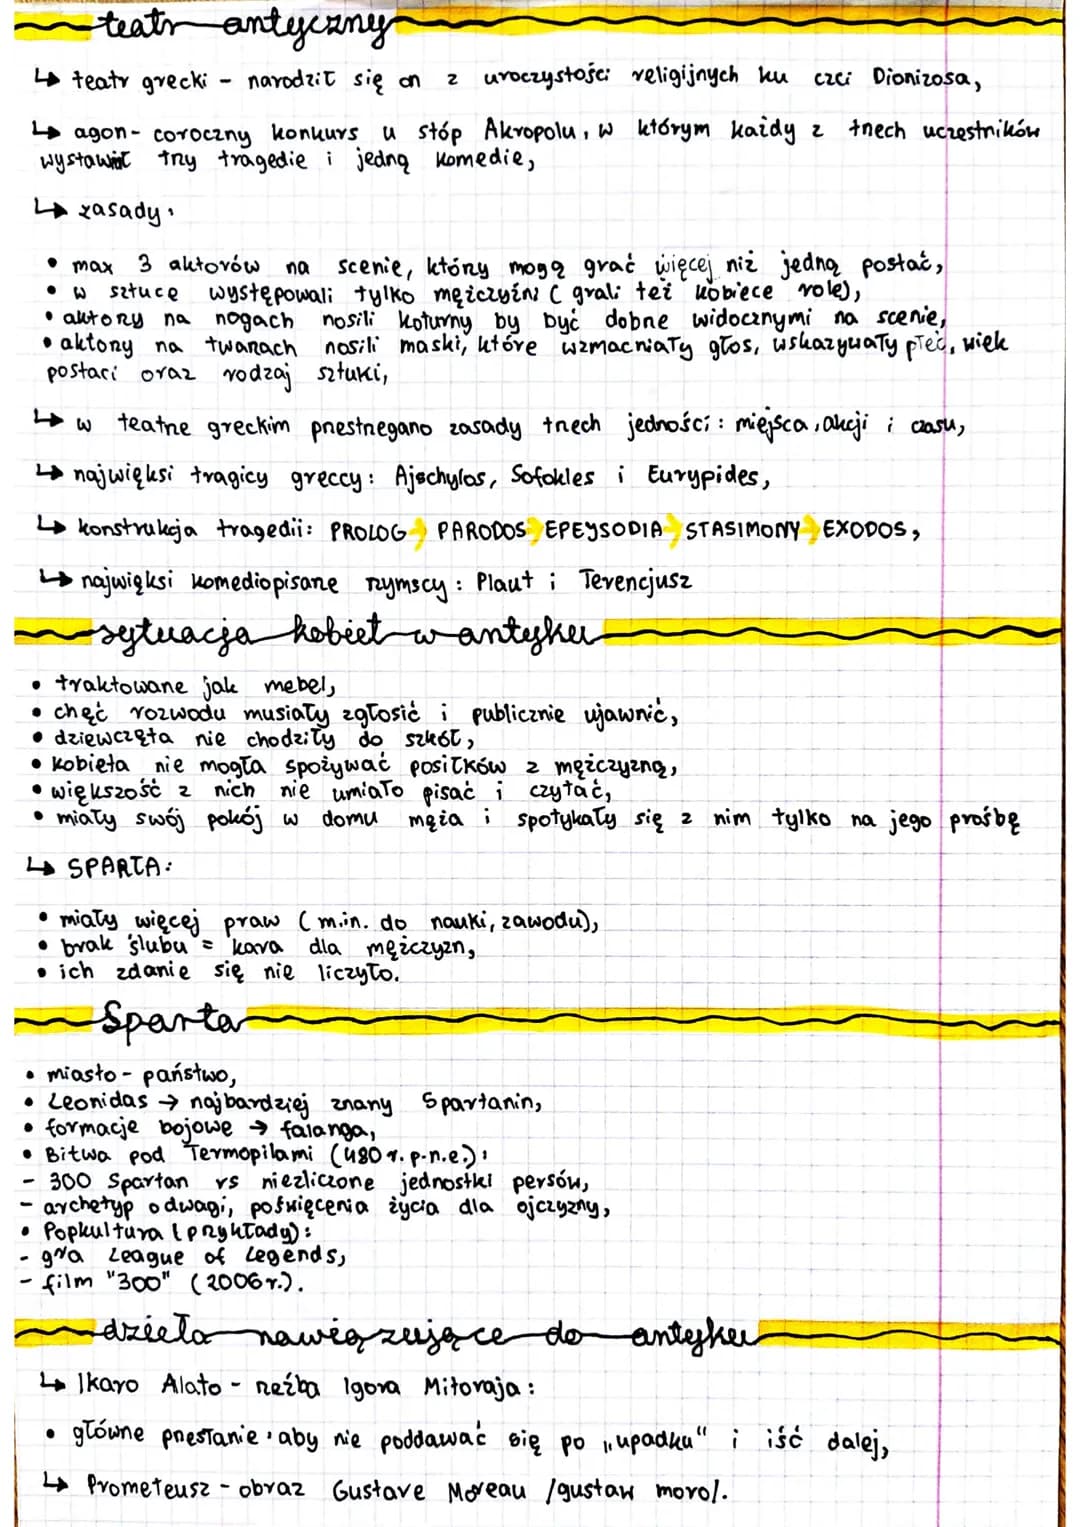 teatr antyczny
↳ teatr grecki - narodził się on z uroczystości religijnych ku czci Dionizosa,
↳ agon - coroczny konkurs u stóp Akropolu, w którym każdy z trzech uczestników
wystawiał trzy tragedie i jedną komedie,
↳ zasady:
• max 3 aktorów na scenie, którzy mogą grać więcej niż jedną postać,
• w sztuce występowali tylko mężczyźni (grali też kobiece role),
• aktorzy na nogach nosili koturny by być dobrze widocznymi na scenie,
• aktorzy na twarzach nosili maski, które wzmacniały głos, wskazywały płeć, wiek
postaci oraz rodzaj sztuki,
↳ w teatrze greckim przestrzegano zasady trzech jedności: miejsca, akcji i czasu,
↳ najwięksi tragicy greccy: Ajschylos, Sofokles i Eurypides,
↳ konstrukcja tragedii: PROLOG → PARODOS → EPEJSODIA → STASIMONY → EXODOS,
↳ najwięksi komediopisarze rzymscy: Plaut i Terencjusz
sytuacja kobiet w antyku
• traktowane jak mebel,
• chęć rozwodu musiały zgłosić i publicznie ujawnić,
• dziewczęta nie chodziły do szkół,
• kobieta nie mogła spożywać posiłków z mężczyzną,
• większość z nich nie umiało pisać i czytać,
• miały swój pokój w domu męża i spotykały się z nim tylko na jego prośbę
↳ SPARTA:
• miały więcej praw (m.in. do nauki, zawodu),
• brak ślubu = kara dla mężczyzn,
• ich zdanie się nie liczyło.
Sparta
• miasto - państwo,
• Leonidas → najbardziej znany Spartanin,
• formacje bojowe → falanga,
• Bitwa pod Termopilami (480 r. p.n.e.):
- 300 Spartan vs niezliczone jednostki persów,
- archetyp odwagi, poświęcenia życia dla ojczyzny,
• Popkultura (przykłady):
- gra League of Legends,
- film "300" (2006r.).
dzieła nawiązujące do antyku
↳ Ikaro Alato - rzeźba Igora Mitoraja:
• główne przesłanie: aby nie poddawać się po „upadku" i iść dalej,
↳ Prometeusz - obraz Gustave Moreau /gustaw moro/.